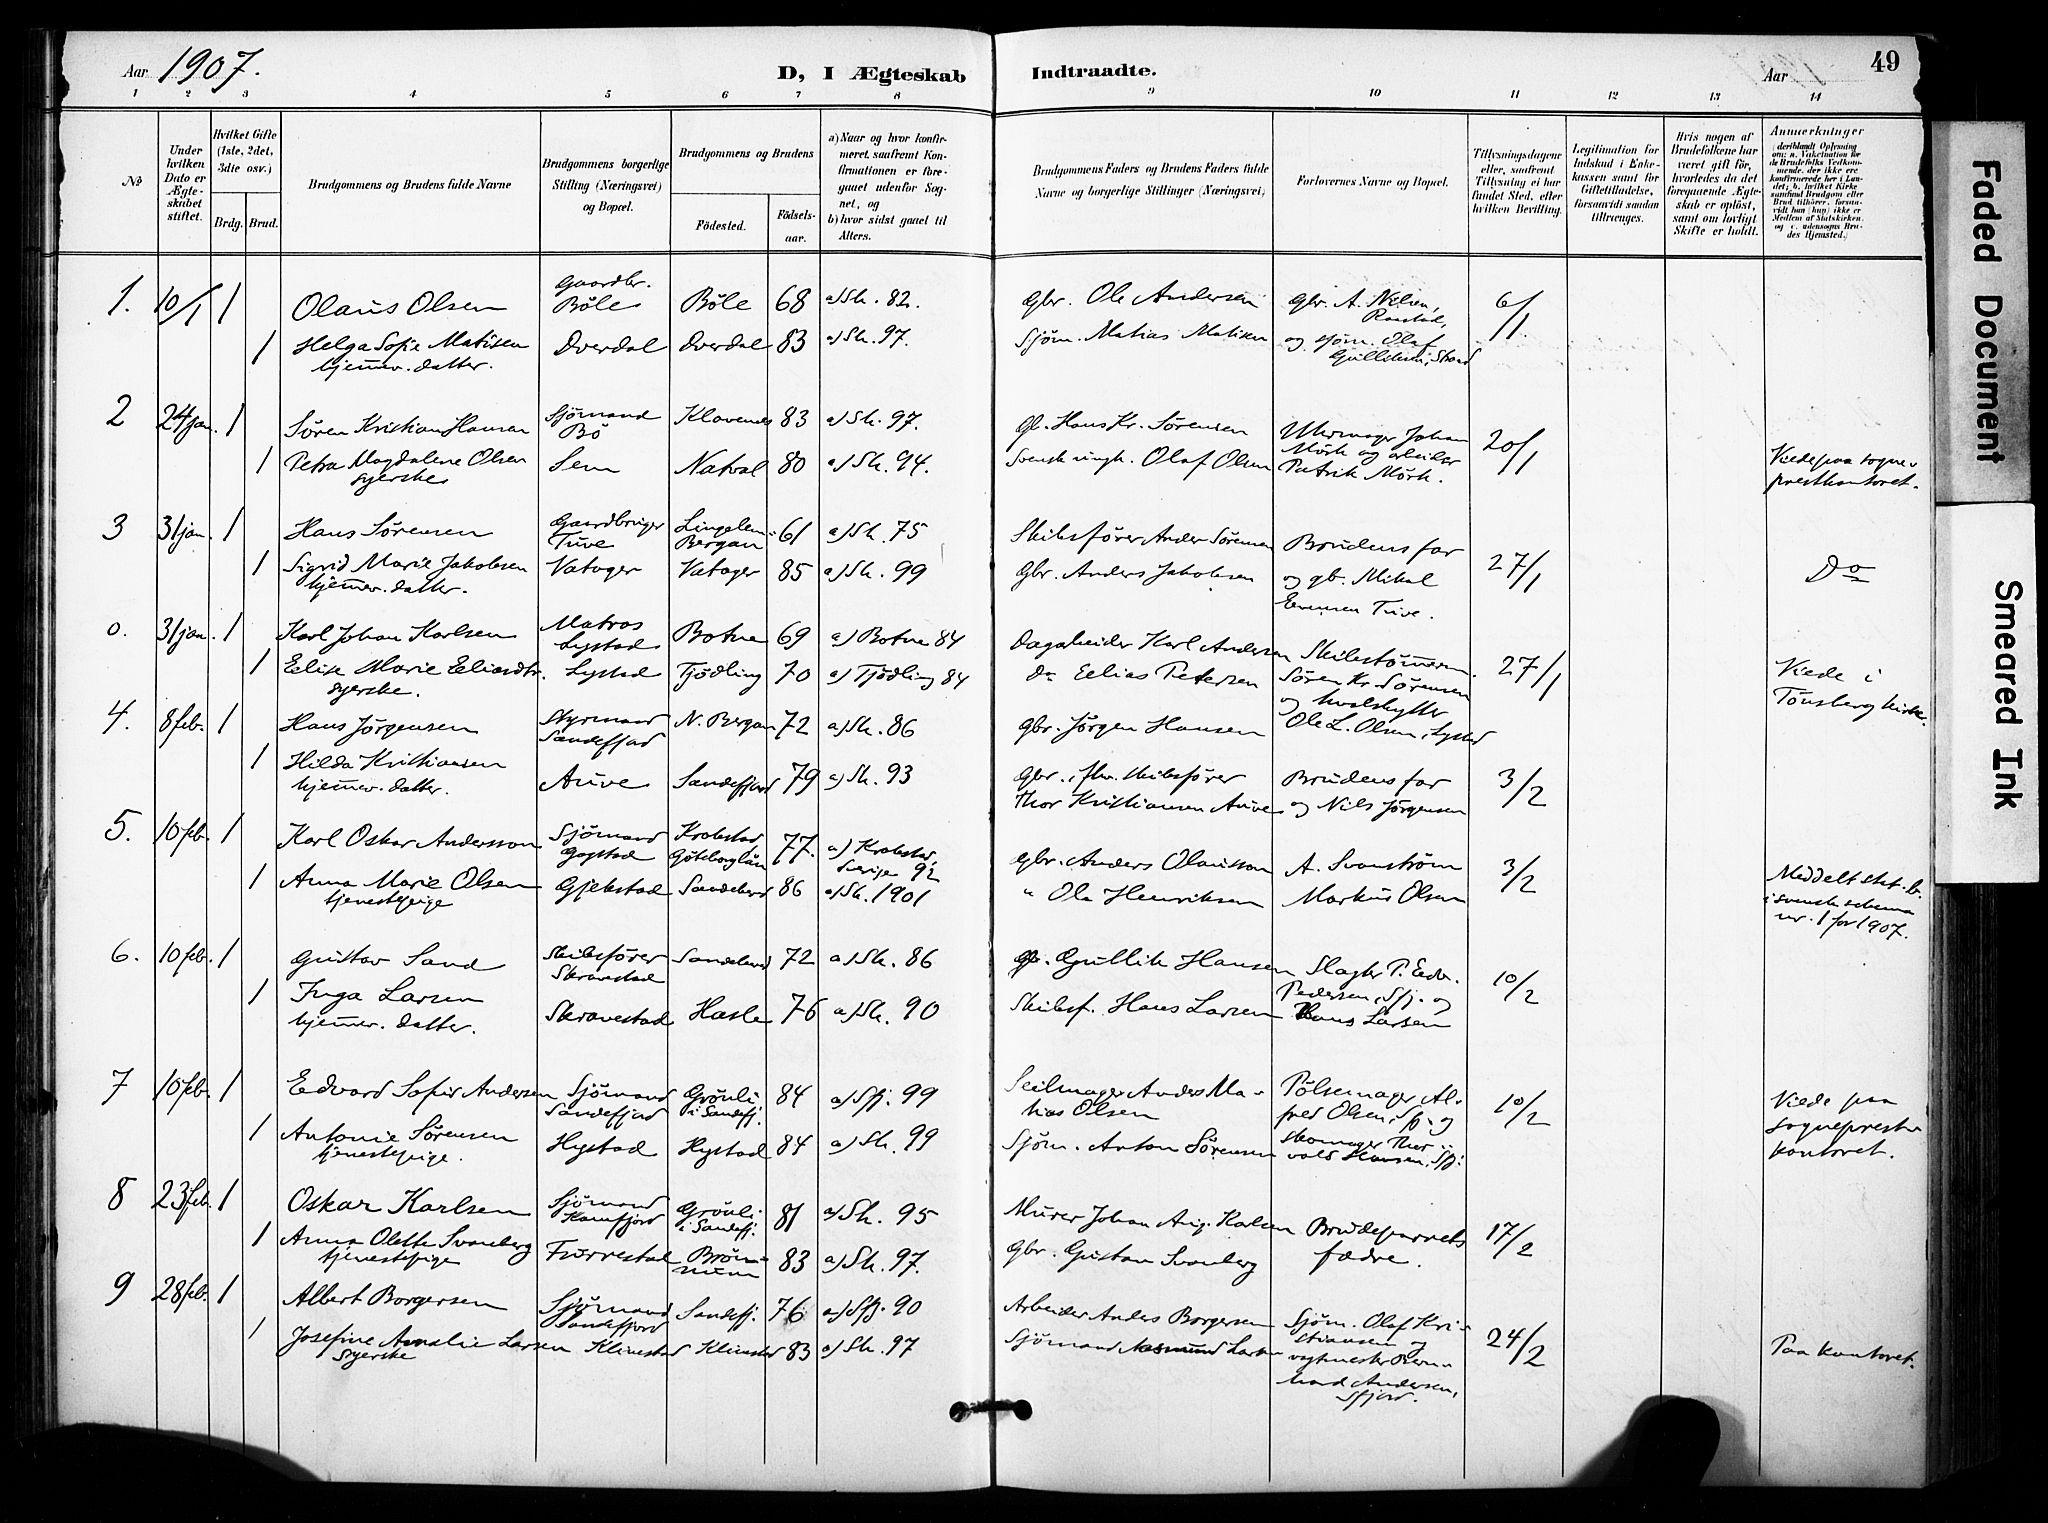 Aar 1907.
D, I Ægteskab Indtraadte.
Aar
49
1 2 3 4 5 6 7 8 9 10 11 12 13 14
№
Under hvilken Dato er Ægteskabet stiftet.
Hvilket Gifte (1ste, 2det, 3die osv.)
Brdg. Brud.
Brudgommens og Brudens fulde Navne
Brudgommens borgerlige Stilling (Næringsvei) og Bopæl.
Brudgommens og Brudens
Fødested. Fødselsaar.
a) Naar og hvor konfirmeret, saafremt Konfirmationen er foregaaet udenfor Sognet, og
b) hvor sidst gaaet til Alters.
Brudgommens Faders og Brudens Faders fulde Navne og borgerlige Stillinger (Næringsvei)
Forlovernes Navne og Bopæl.
Tillysningsdagene eller, saafremt Tillysning ei har fundet Sted, efter hvilken Bevilling.
Legitimation for Indskud i Enkekassen samt for Giftetilladelse, forsaavidt saadan tiltrænges.
Hvis nogen af Brudefolkene har været gift før, hvorledes da det foregaaende Ægteskab er opløst, samt om lovligt Skifte er holdt.
Anmerkninger
1. 10/1 1 Olaus Olsen Gaardbr. Bøle Bøle 68 a) Sh. 82. Gbr. Ole Andersen Gbr. A. Nielsen, 6/1
1 Helga Sofie Matisen Dverdal Dverdal 83 a) Sh. 97. Sjøm. Matias Matisen og sjøm. Olaf
hjemmev. datter.
2 24 jan. 1 Søren Kristian Hansen Sjømand Bø Klavenes 83 a) Sh. 97. Gb. Hans Kr. Sørensen Uhrmager Johan Mørk og arbeider Patrik Mørk. 20/1
1 Petra Magdalene Olsen Sem Natval 80 a) Sh. 94. Olaf Olsen Viede paa sogneprestkontoret.
syerske
3 31 jan. 1 Hans Sørensen Gaardbruger Tuve Bergan 61 a) Sh. 75 Skibsfører Anders Sørensen Brudens far 27/1
1 Sigrid Marie Jakobsen Vatager Vatager 85 a) Sh. 99 Gbr. Anders Jakobsen og gb. Mikal Evensen Tuve. Do
hjemmev. datter.
0. 31 jan. 1 Karl Johan Karlsen Matros Lystad Botne 69 a) Botne 84 Dagarbeider Karl Andersen Skibstømmerm. Søren Kr. Sørensen og hvalskytter Ole L. Olsen, Lystad 27/1
1 Elise Marie Eliasdtr. Lystad Tjødling 70 a) Tjødling 84 Do Elias Petersen Viede i Tønsberg kirke.
syerske.
4. 8 feb. 1 Hans Jørgensen Styrmand Sandefjord N. Bergan 72 a) Sh. 86 Gbr. Jørgen Hansen
1 Hilda Kristiansen Auve Sandefjord 79 a) Sh. 93 Gbr. fhv. skibsfører Thor Kristiansen Auve Brudens far og Nils Jørgensen 3/2
hjemmev. datter.
5. 10 feb. 1 Karl Oskar Andersson Sjømand Gogstad Krokstad, Göteborglän 77. a) Krokstad, Sverige 92 Gbr. Anders Olausson A. Svanstrøm 3/2
1 Anna Marie Olsen Gjekstad Sandeherd 86 a) Sh. 1901 " Ole Henriksen Markus Olsen Meddelt stat. b. i svensk schema nr. 1 for 1907.
tjenestepige
6. 10 feb. 1 Gustav Sand Skibsfører Skravestad Sandeherd 72 a) Sh. 86 Gb. Gullik Hansen Slagter P. Edv. Pedersen, Sfj. og Hans Larsen 10/2
1 Inga Larsen Skravestad Hasle 76 a) Sh. 90 Skibsf. Hans Larsen
hjemmev. datter.
7 10 feb. 1 Edvard Sofus Andersen Sjømand Sandefjord Grønli i Sandefj. 84 a) Sfj. 99 Seilmager Anders Mathias Olsen Pølsemager Alfred Olsen, Sfj. og skomager Thorvald Hansen, Sfj. 10/2
1 Antonie Sørensen Hystad Hystad 84 a) Sh. 99 Sjøm. Anton Sørensen Viede paa sogneprestkontoret.
tjenestepige.
8 23 feb. 1 Oskar Karlsen Sjømand Kamfjord Grønli i Sandefj. 81 a) Sh. 95 Murer Johan Aug. Karlsen Brudeparrets fædre. 17/2
1 Anna Olette Svanberg Furrestad Brønnum 83 a) Sh. 97. Gbr. Gustav Svanberg
tjenestepige
9 28 feb. 1 Albert Borgersen Sjømand Sandefjord Sandefj. 76 a) Sfj. 90 Arbeider Anders Borgersen Sjøm. Olaf Kristiansen og vagtmester Bernhard Andersen, Sfjord. 24/2
1 Josefine Amalie Larsen Klinestad Klinestad 83 a) Sh. 97 Sjømand Larsen Paa kontoret.
syerske
Faded Document
Smeared Ink